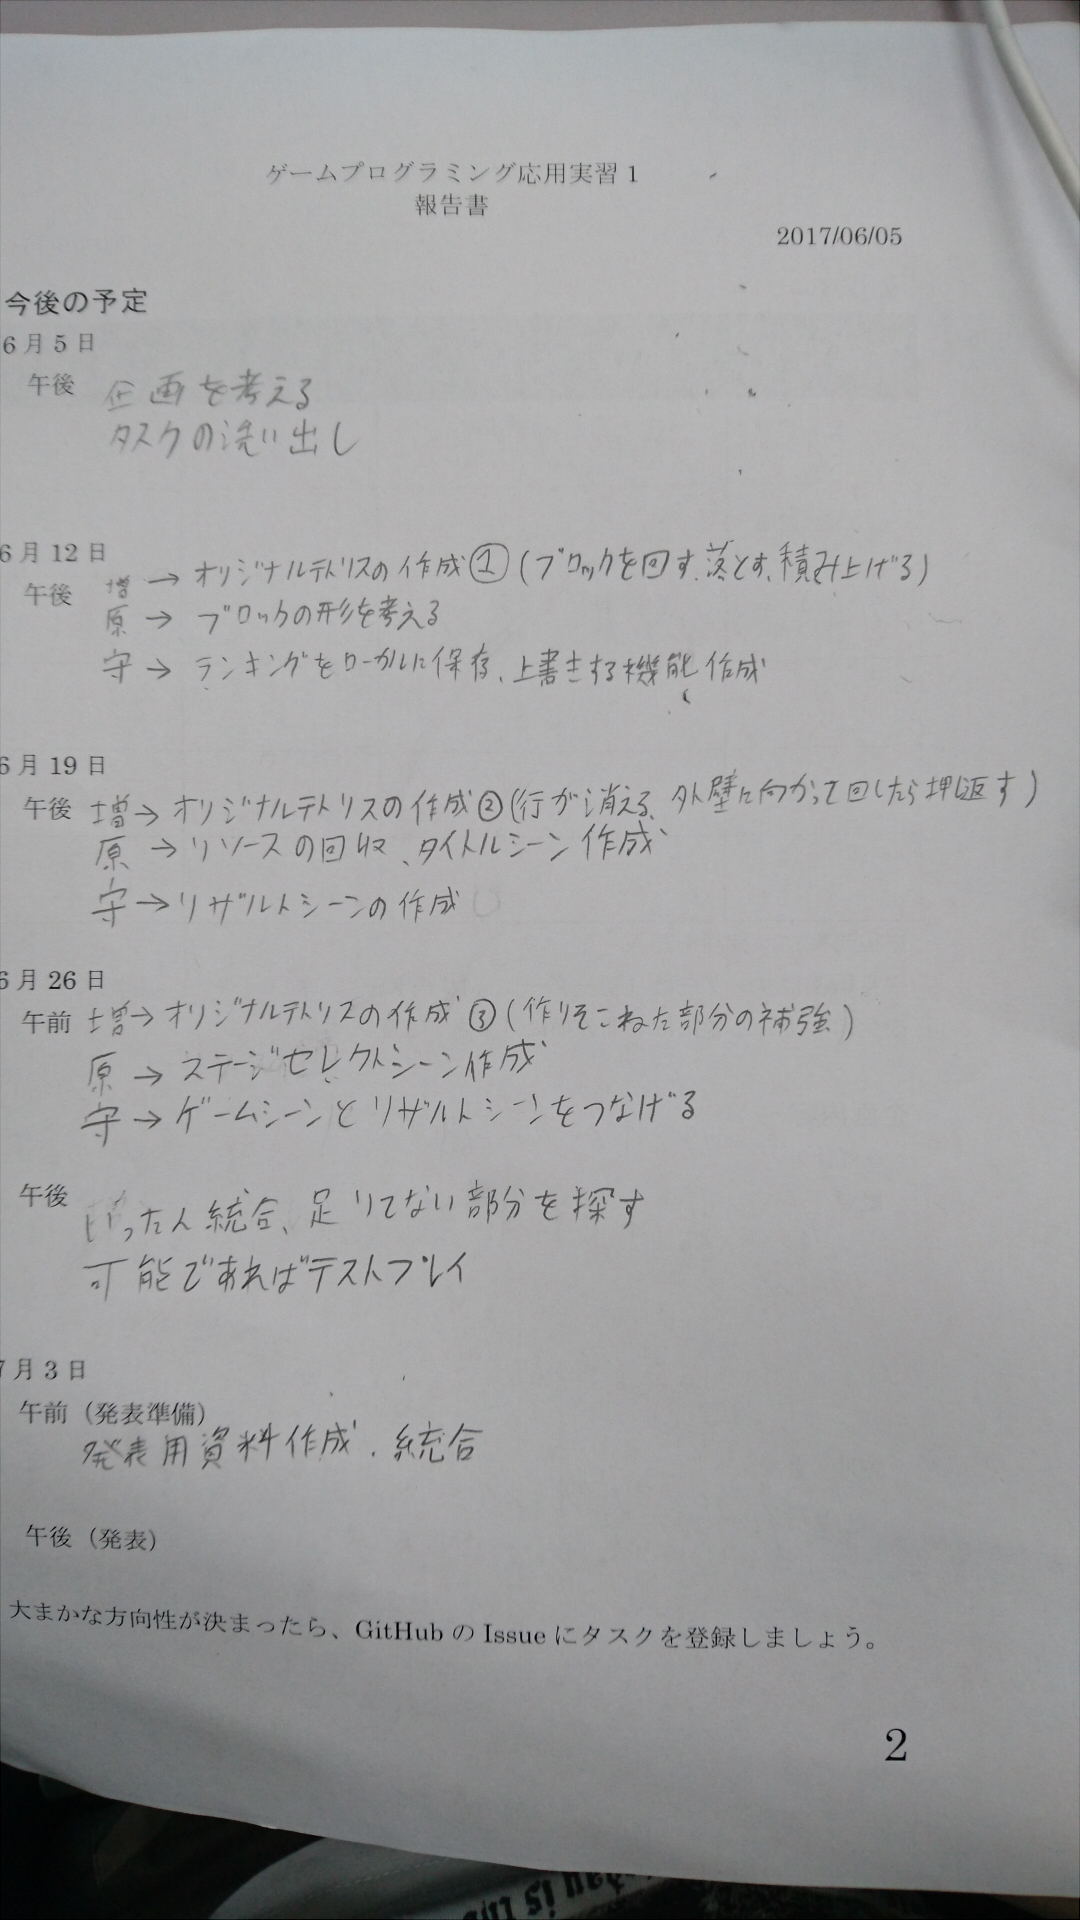 ゲームプログラミング応用実習 1
報告書
2017/06/05
今後の予定
6 月 5 日
午後 企画を考える
タスクの洗い出し
6 月 12 日
午後 増 → オリジナルテトリスの作成① (ブロックを回す、落とす、積み上げる)
原 → ブロックの形を考える
守 → ランキングをローカルに保存、上書きする機能作成
6 月 19 日
午後 増→ オリジナルテトリスの作成② (行が消える、外壁に向かって回したら押し返す)
原 → リソースの回収、タイトルシーン作成
守 → リザルトシーンの作成
6 月 26 日
午前 増→ オリジナルテトリスの作成 ③ (作りそこねた部分の補強)
原 → ステージセレクトシーン作成
守 → ゲームシーンとリザルトシーンをつなげる
午後 いったん統合、足りてない部分を探す
可能であればテストプレイ
7 月 3 日
午前（発表準備）
発表用資料作成、統合
午後（発表）
大まかな方向性が決まったら、GitHub の Issue にタスクを登録しましょう。
2